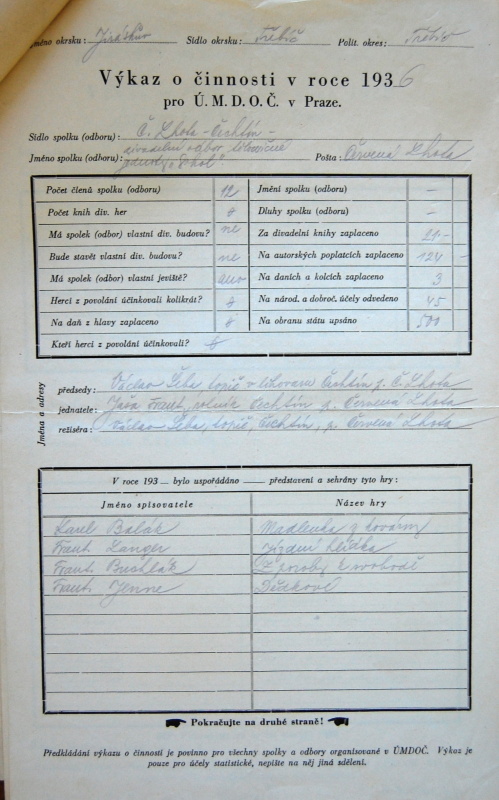 Jméno okrsku: Jiráskův Sídlo okrsku: Třebíč Polit. okres: Třebíč
Výkaz o činnosti v roce 1936
pro Ú. M. D. O. Č. v Praze.
Sídlo spolku (odboru): Č. Lhota - Čechtín -
Jméno spolku (odboru): divadelní odbor tělocvičné
jednoty „Sokol“ Pošta: Červená Lhota
Počet členů spolku (odboru) 12 Jmění spolku (odboru) —
Počet knih div. her Dluhy spolku (odboru) —
Má spolek (odbor) vlastní div. budovu? ne Za divadelní knihy zaplaceno 21.-
Bude stavět vlastní div. budovu? ne Na autorských poplatcích zaplaceno 124 -
Má spolek (odbor) vlastní jeviště? ano Na daních a kolcích zaplaceno 3
Herci z povolání účinkovali kolikrát? Na národ. a dobroč. účely odvedeno 45
Na daň z hlavy zaplaceno Na obranu státu upsáno 500
Kteří herci z povolání účinkovali?
Jména a adresy
předsedy: Václav Léba topič v lihovaru Čechtín p. Č. Lhota
jednatele: Frant. rolník Čechtín, p. Červená Lhota
režiséra: Václav Léba, topič, Čechtín, p. Červená Lhota
V roce 193— bylo uspořádáno —— představení a sehrány tyto hry:
Jméno spisovatele Název hry
Karel Balák Madlenka z kovárny
Frant. Langer Jízdní hlídka
Frant. Z poroby k svobodě
Frant. Dědkové
Pokračujte na druhé straně!
Předkládání výkazu o činnosti je povinno pro všechny spolky a odbory organisované v ÚMDOČ. Výkaz je
pouze pro účely statistické, nepište na něj jiná sdělení.